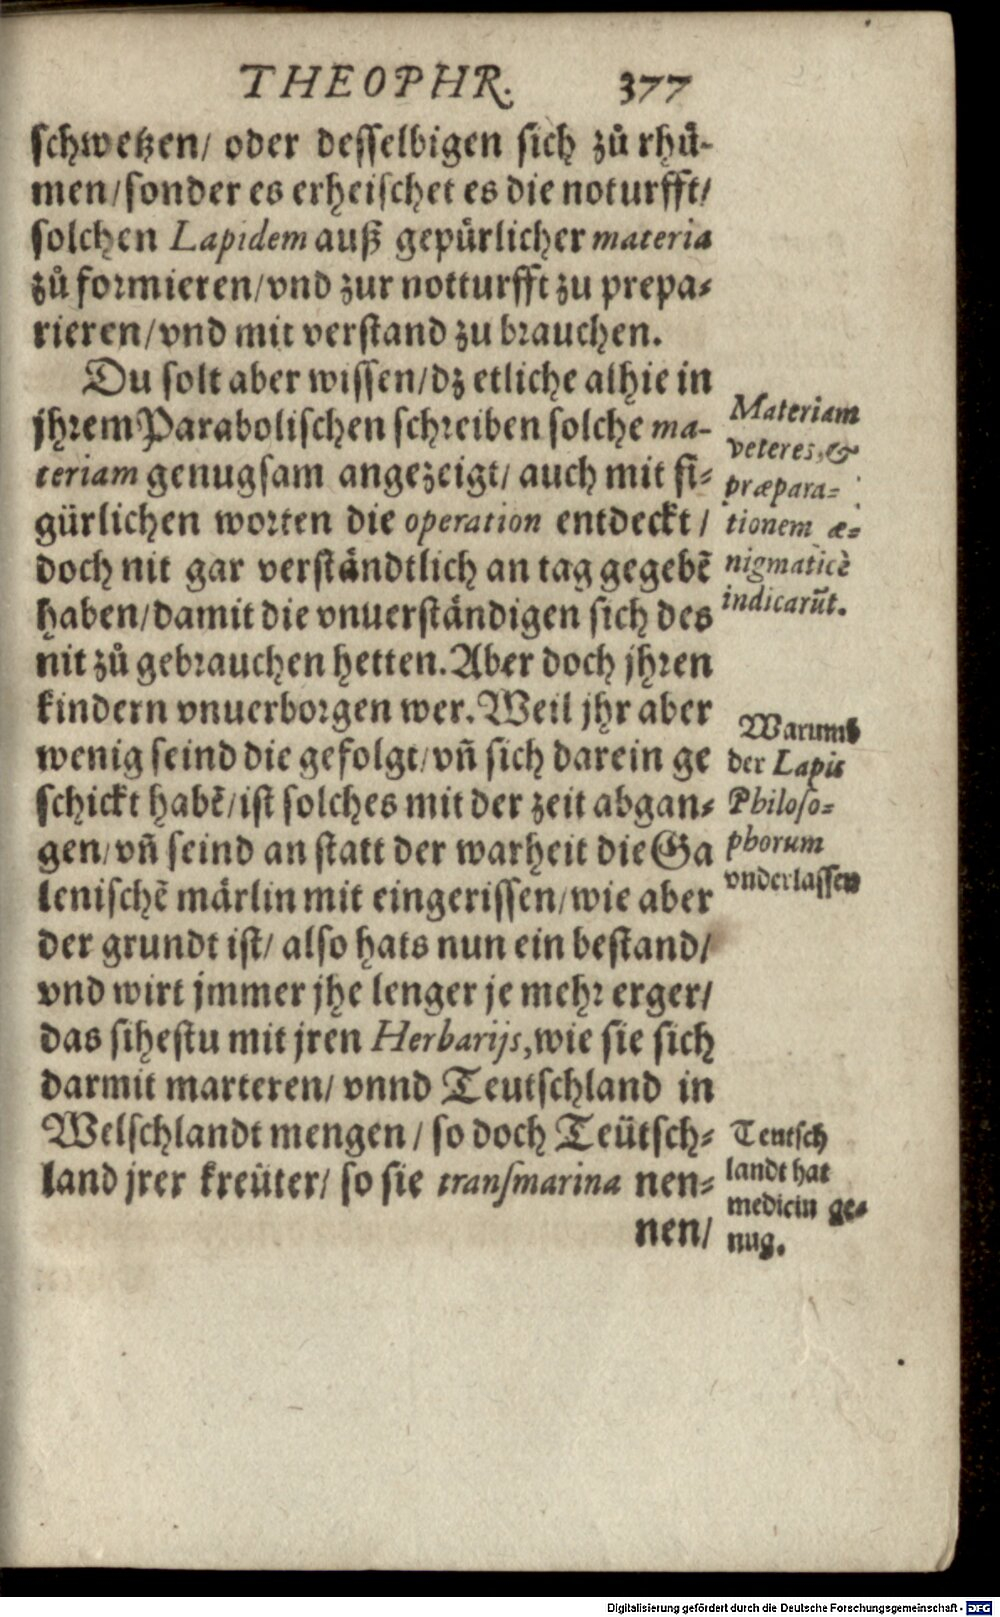 THEOPHR. 377
schwetzen/ oder desselbigen sich zů rhů-
men/sonder es erheischet es die noturfft/
solchen Lapidem auß gepürlicher materia
zů formieren/vnd zur notturfft zu prepa-
rieren/vnd mit verstand zu brauchen.
Du solt aber wissen/dz etliche alhie in
jhrem Parabolischen schreiben solche ma-
teriam genugsam angezeigt/ auch mit fi-
gürlichen worten die operation entdeckt/
doch nit gar verständtlich an tag gegebē
haben/damit die vnuerständigen sich des
nit zů gebrauchen hetten. Aber doch jhren
kindern vnuerborgen wer. Weil jhr aber
wenig seind die gefolgt/vñ sich darein ge
schickt habē/ist solches mit der zeit abgan-
gen/vñ seind an statt der warheit die Ga
lenischē märlin mit eingerissen/wie aber
der grundt ist/ also hats nun ein bestand/
vnd wirt jmmer jhe lenger je mehr erger/
das sihestu mit jren Herbarijs, wie sie sich
darmit marteren/ vnnd Teutschland in
Welschlandt mengen/ so doch Teütsch-
land jrer kreüter/ so sie transmarina nen-
nen/
Materiam
veteres, &
præpara-
tionem æ-
nigmaticè
indicarūt.
Warumb
der Lapis
Philoso-
phorum
vnderlassen
Teutsch
landt hat
medicin ge-
nug.
Digitalisierung gefördert durch die Deutsche Forschungsgemeinschaft - DFG